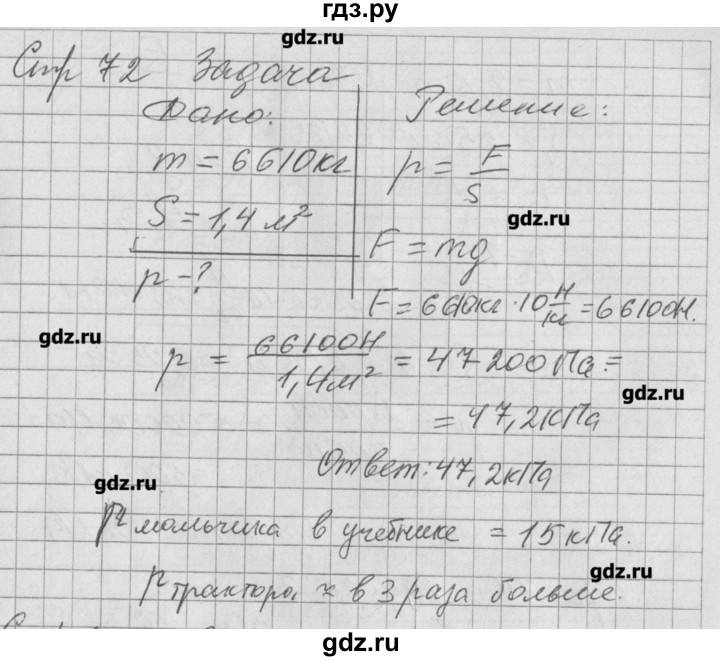 гдз.ру
gdz.ru
Стр 72 Задача
Дано:
Решение:
m = 6610кг
p = F/S
S = 1,4 м²
gdz.ru
F = mg
p - ?
F = 6610кг · 10 Н/кг = 66100Н.
gdz.ru
p = 66100Н / 1,4м² = 47 200 Па =
gdz.ru
= 47,2кПа
Ответ: 47,2кПа
gdz.ru
p мальчика в учебнике = 15 кПа.
gdz.ru
p трактора ≈ в 3 раза больше.
gdz.ru